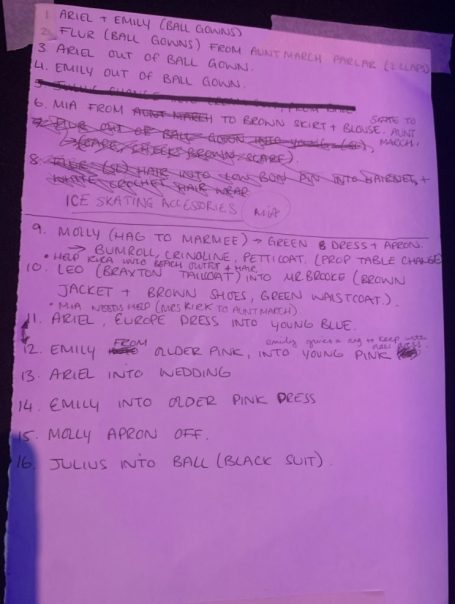 1. ARIEL + EMILY (BALL GOWNS)
2. FLUR (BALL GOWNS) FROM AUNT MARCH PARLAR (2 CLAPS)
3 ARIEL OUT OF BALL GOWN.
4. EMILY OUT OF BALL GOWN.
5 JULIUS CHANGE INTO
6. MIA FROM AUNT MARCH TO BROWN SKIRT + BLOUSE. SKATE TO AUNT MARCH.
7. FLUR OUT OF BALL GOWN INTO YOUNG
(CAPE, BROWN SCARF).
8. FLUR HAIR INTO LOW BUN PIN INTO HAIRNET, +
WHITE CROCHET HAIR WEAR
ICE SKATING ACCESSORIES MIA
9. MOLLY (HAG TO MARMEE) → GREEN DRESS + APRON.
→ BUMROLL, CRINOLINE, PETTICOAT. (PROP TABLE CHANGE)
* HELP KIRA INTO BEACH OUTFIT + HAIR
10. LEO (BRAXTON TAILCOAT) INTO MR BROOKE (BROWN
JACKET + BROWN SHOES, GREEN WAISTCOAT).
* MIA NEEDS HELP (MRS KIRK TO AUNT MARCH)
11. ARIEL, EUROPE DRESS INTO YOUNG BLUE.
12. EMILY FROM OLDER PINK, INTO YOUNG PINK
emily gives a leg to keep with
13. ARIEL INTO WEDDING
14. EMILY INTO OLDER PINK DRESS
15. MOLLY APRON OFF.
16. JULIUS INTO BALL (BLACK SUIT).